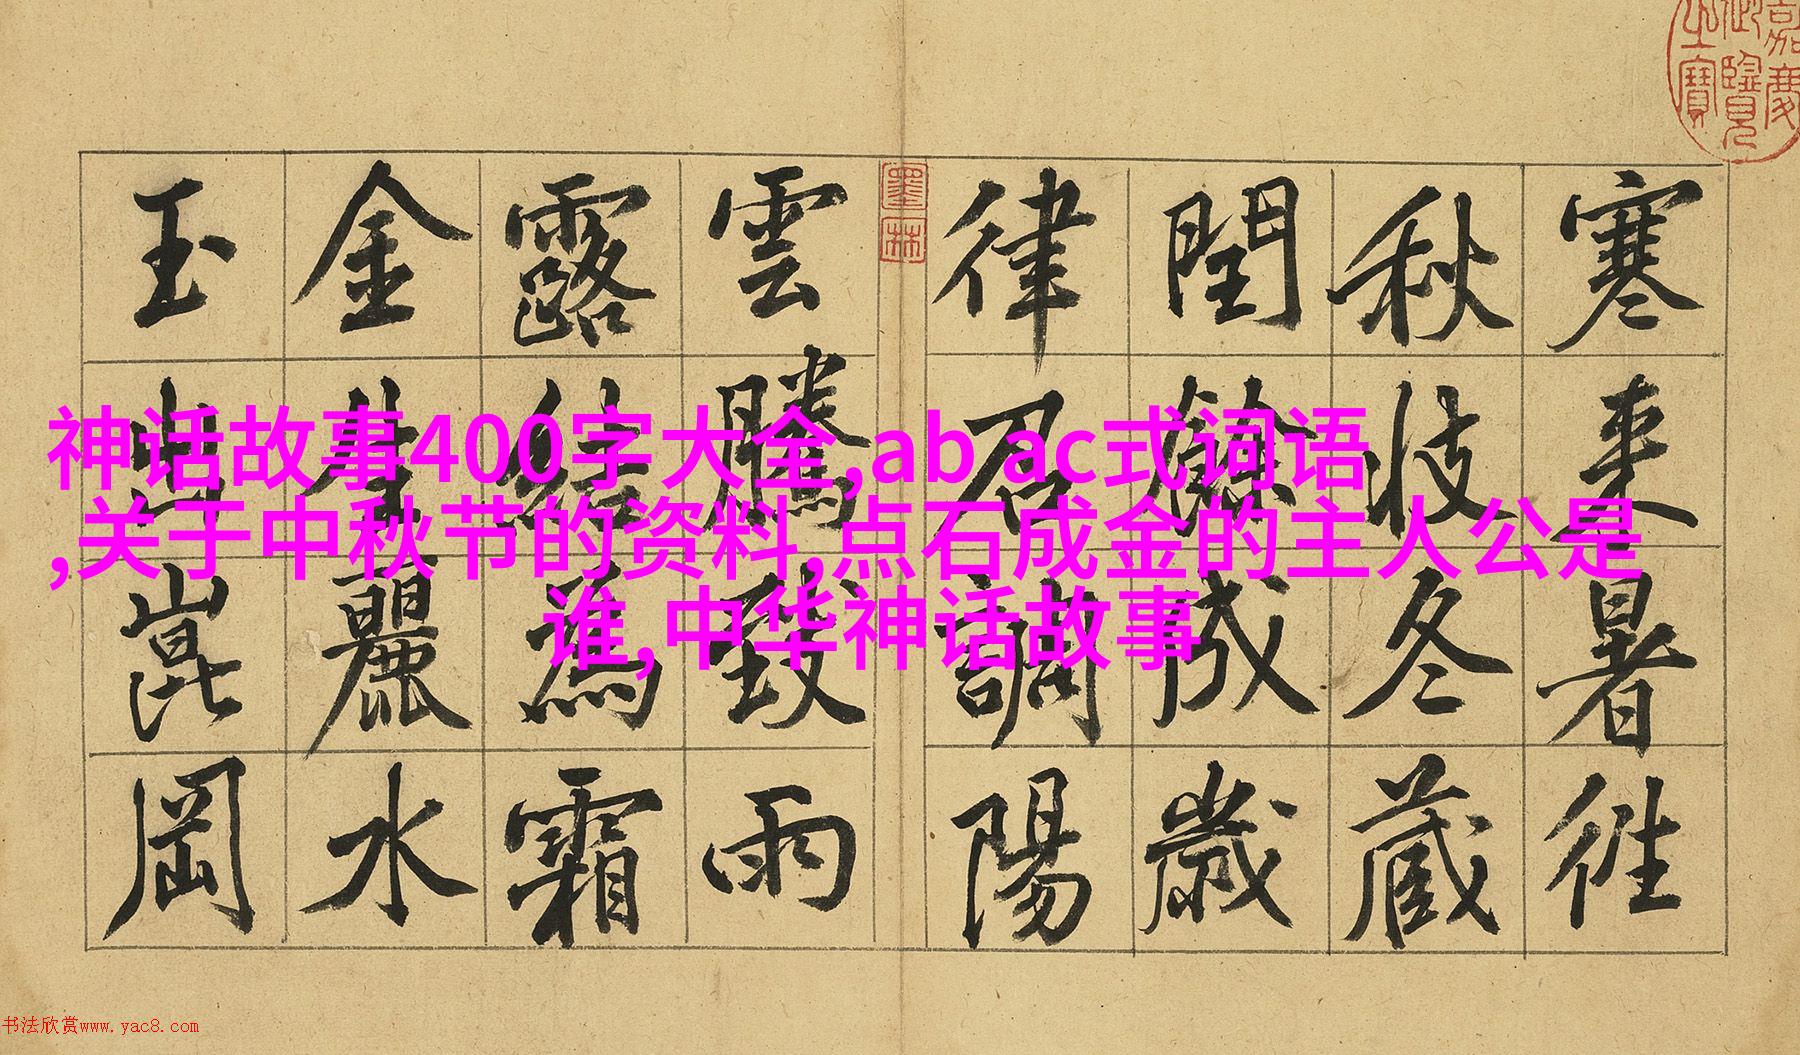 嘉慶御覽之寶
寒来暑往
秋收冬藏
閏餘成歲
律召調陽
墨林
雲騰致雨
露結為霜
金生麗水
玉出崑岡
神话故事400字大全,ab ac式词语
,关于中秋节的资料,点石成金的主人公是
谁,中华神话故事
书法欣赏www.yac8.com